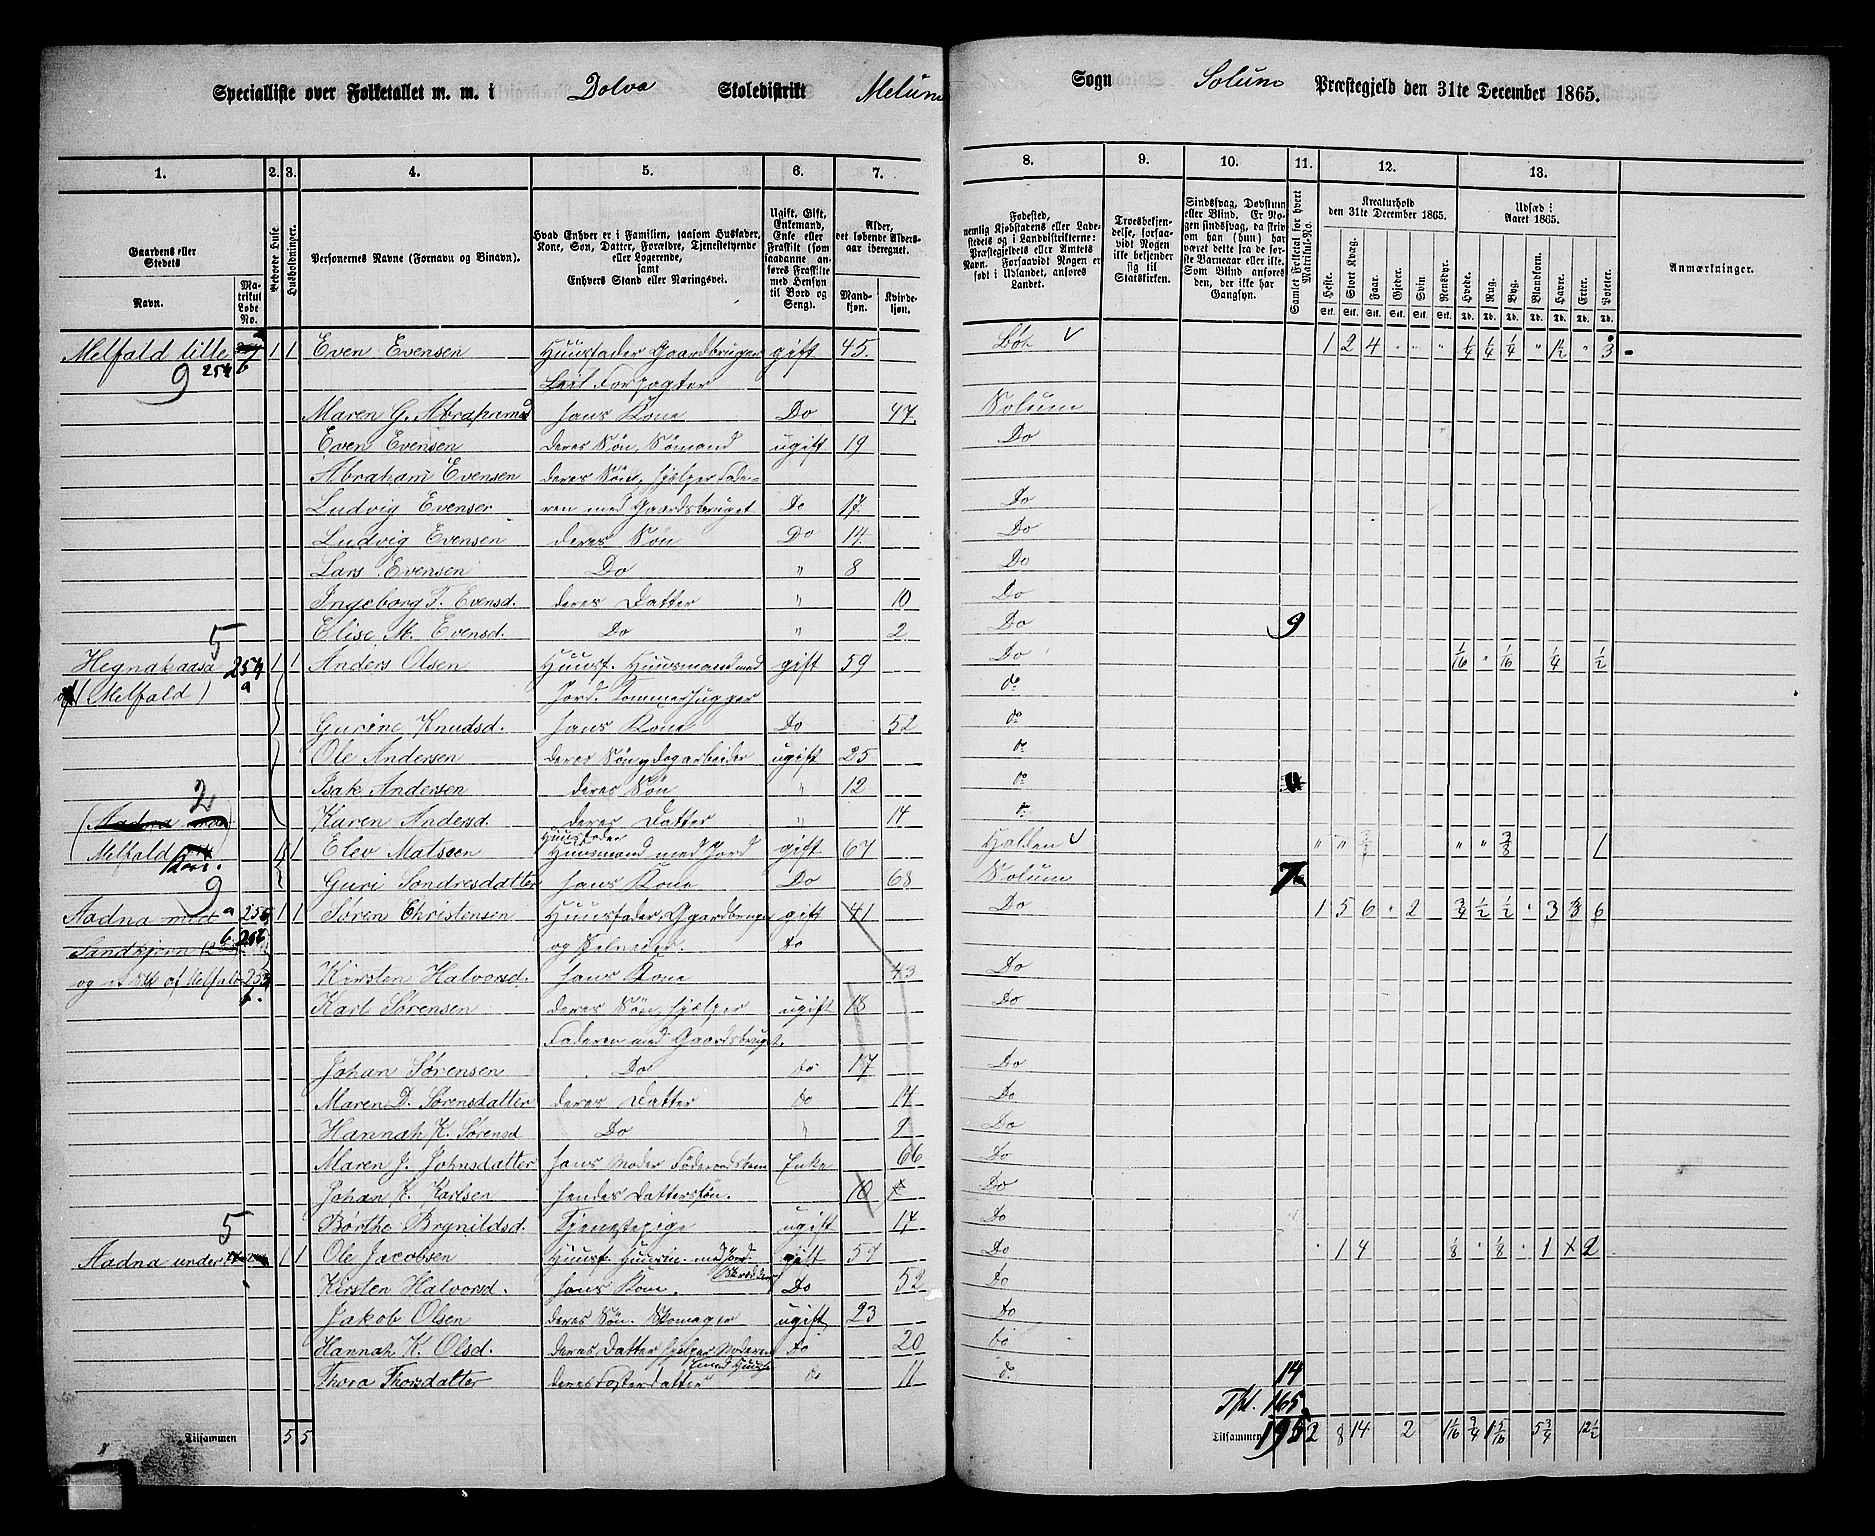 Specialliste over Folketallet m. m. i Dolva Skoledistrikt Melum Sogn Solum Præstegjeld den 31te December 1865.
1. 2. 3. 4. 5. 6. 7. 8. 9. 10. 11. 12. 13.
Gaardens eller Stedets
Navn.
Matrikul Løbe No.
Beboede Huse.
Husholdninger.
Personernes Navne (Fornavn og Binavn).
Hvad Enhver er i Familien, saasom Husfader, Kone, Søn, Datter, Forældre, Tjenestetyende eller Logerende, samt Enhvers Stand eller Næringsvei.
Ugift, Gift, Enkemand, Enke eller Fraskilt (som saadanne anføres Fraskilte med Hensyn til Bord og Seng).
Alder, det løbende Aldersaar iberegnet.
Mandkjøn. Kvindekjøn.
Fødested, nemlig Kjøbstadens eller Ladestedets og i Landdistrikterne: Præstegjeldets eller Amtets Navn. Forsaavidt Nogen er født i Udlandet, anføres Landet.
Troesbekjendelse, forsaavidt Nogen ikke bekjender sig til Statskirken.
Sindssvag, Døvstum eller Blind. Er Nogen sindssvag, da skriv om han (hun) har været dette fra de første Barneaar eller ikke. Som Blind anføres den, der ikke har Gangsyn.
Samlet Folketal for hvert Matrikul-No.
Kreaturhold den 31te December 1865.
Heste. Stort Kvæg. Faar. Gjeder. Svin. Rensdyr.
Udsæd i Aaret 1865.
Hvede. Rug. Byg. Blandkorn. Havre. Erter. Poteter.
Anmærkninger.
Melfald lille 254 b 1 1 Even Evensen Huusfader Gaardbruger gift 45. Böh 1 2 4 1/4 1/4 1/4 1 1/2 3
9 Leil. Forpagter
Maren G. Abrahamsd hans Kone Do 47. Solum
Even Evensen deres Søn, Sømand ugift 19 Do
Abraham Evensen deres Søn, hjelper Fade-
Ludvig Evensen ren med Gaardsbruget Do 17. Do
Ludvig Evensen deres Søn Do 14. Do
Lars Evensen Do " 8 Do
Ingeborg T. Evensd. deres Datter " 10 Do
Elise M. Evensd. Do " 2 Do 9
5
Hegnahaasa 254 a 1 1 Anders Olsen Huusf. Huusmand med gift 59 Do 1/16 " 1/16 1/4 1/2
(Melfald) Jord. Tømmerhugger do
Gurine Knudsd. hans Kone Do 52 do
Ole Andersen deres Søn, Dagarbeider ugift 25 do
Isak Andersen deres Søn " 12 do
2 Karen Andersd. deres Datter " 14 do
Melfald 1 1 Elev Matsen Huusfader Huusmand med Jord gift 67 Halden " " " " 3/8 1
Guri Sondresdatter hans Kone Do 68 Solum 7
9
Aadna a 256 1 1 Søren Christensen Huusfader, Gaardbruger gift 41 Do 1 5 6 2 3/4 1/2 1/2 3 3/8 6
Sandkjern b 256 og Selveier. Do
og et Stk af Melfald 254 Kirsten Halvorsd. hans Kone 43 Do
Karl Sørensen deres Søn, hjelper ugift 18 Do
Faderen med Gaardsbruget.
Johan Sørensen Do do 17 Do
Maren D. Sørensdatter deres Datter do 14 Do
Hannah K. Sørensd Do " 9 Do
Maren J. Johnsdatter hans Moder Föderaadskone Enke 66 Do
Johan K. Karlsen hendes Dattersøn. 10 Do
5 Børthe Brynildsd. Tjenestepige ugift 17 Do
Aadna under 1 1 Ole Jacobsen Huusf. Huusm. med Jord gift 57 Do 1 4 1/8 1/8 1 2
Kirsten Halvorsd. hans Kone. Do 52 Do
Jakob Olsen deres Søn. Skomager ugift 23 do
Hannah K. Olsd. deres Datter hjelper Moderen do 20 do
Thora Thorsdatter deres Fosterdatter do 11 do 14
Tfd. 165
Tilsammen 5 5 Tilsammen 195 2 8 14 2 1 1/16 3/4 1 5/16 5 3/4 12 1/2